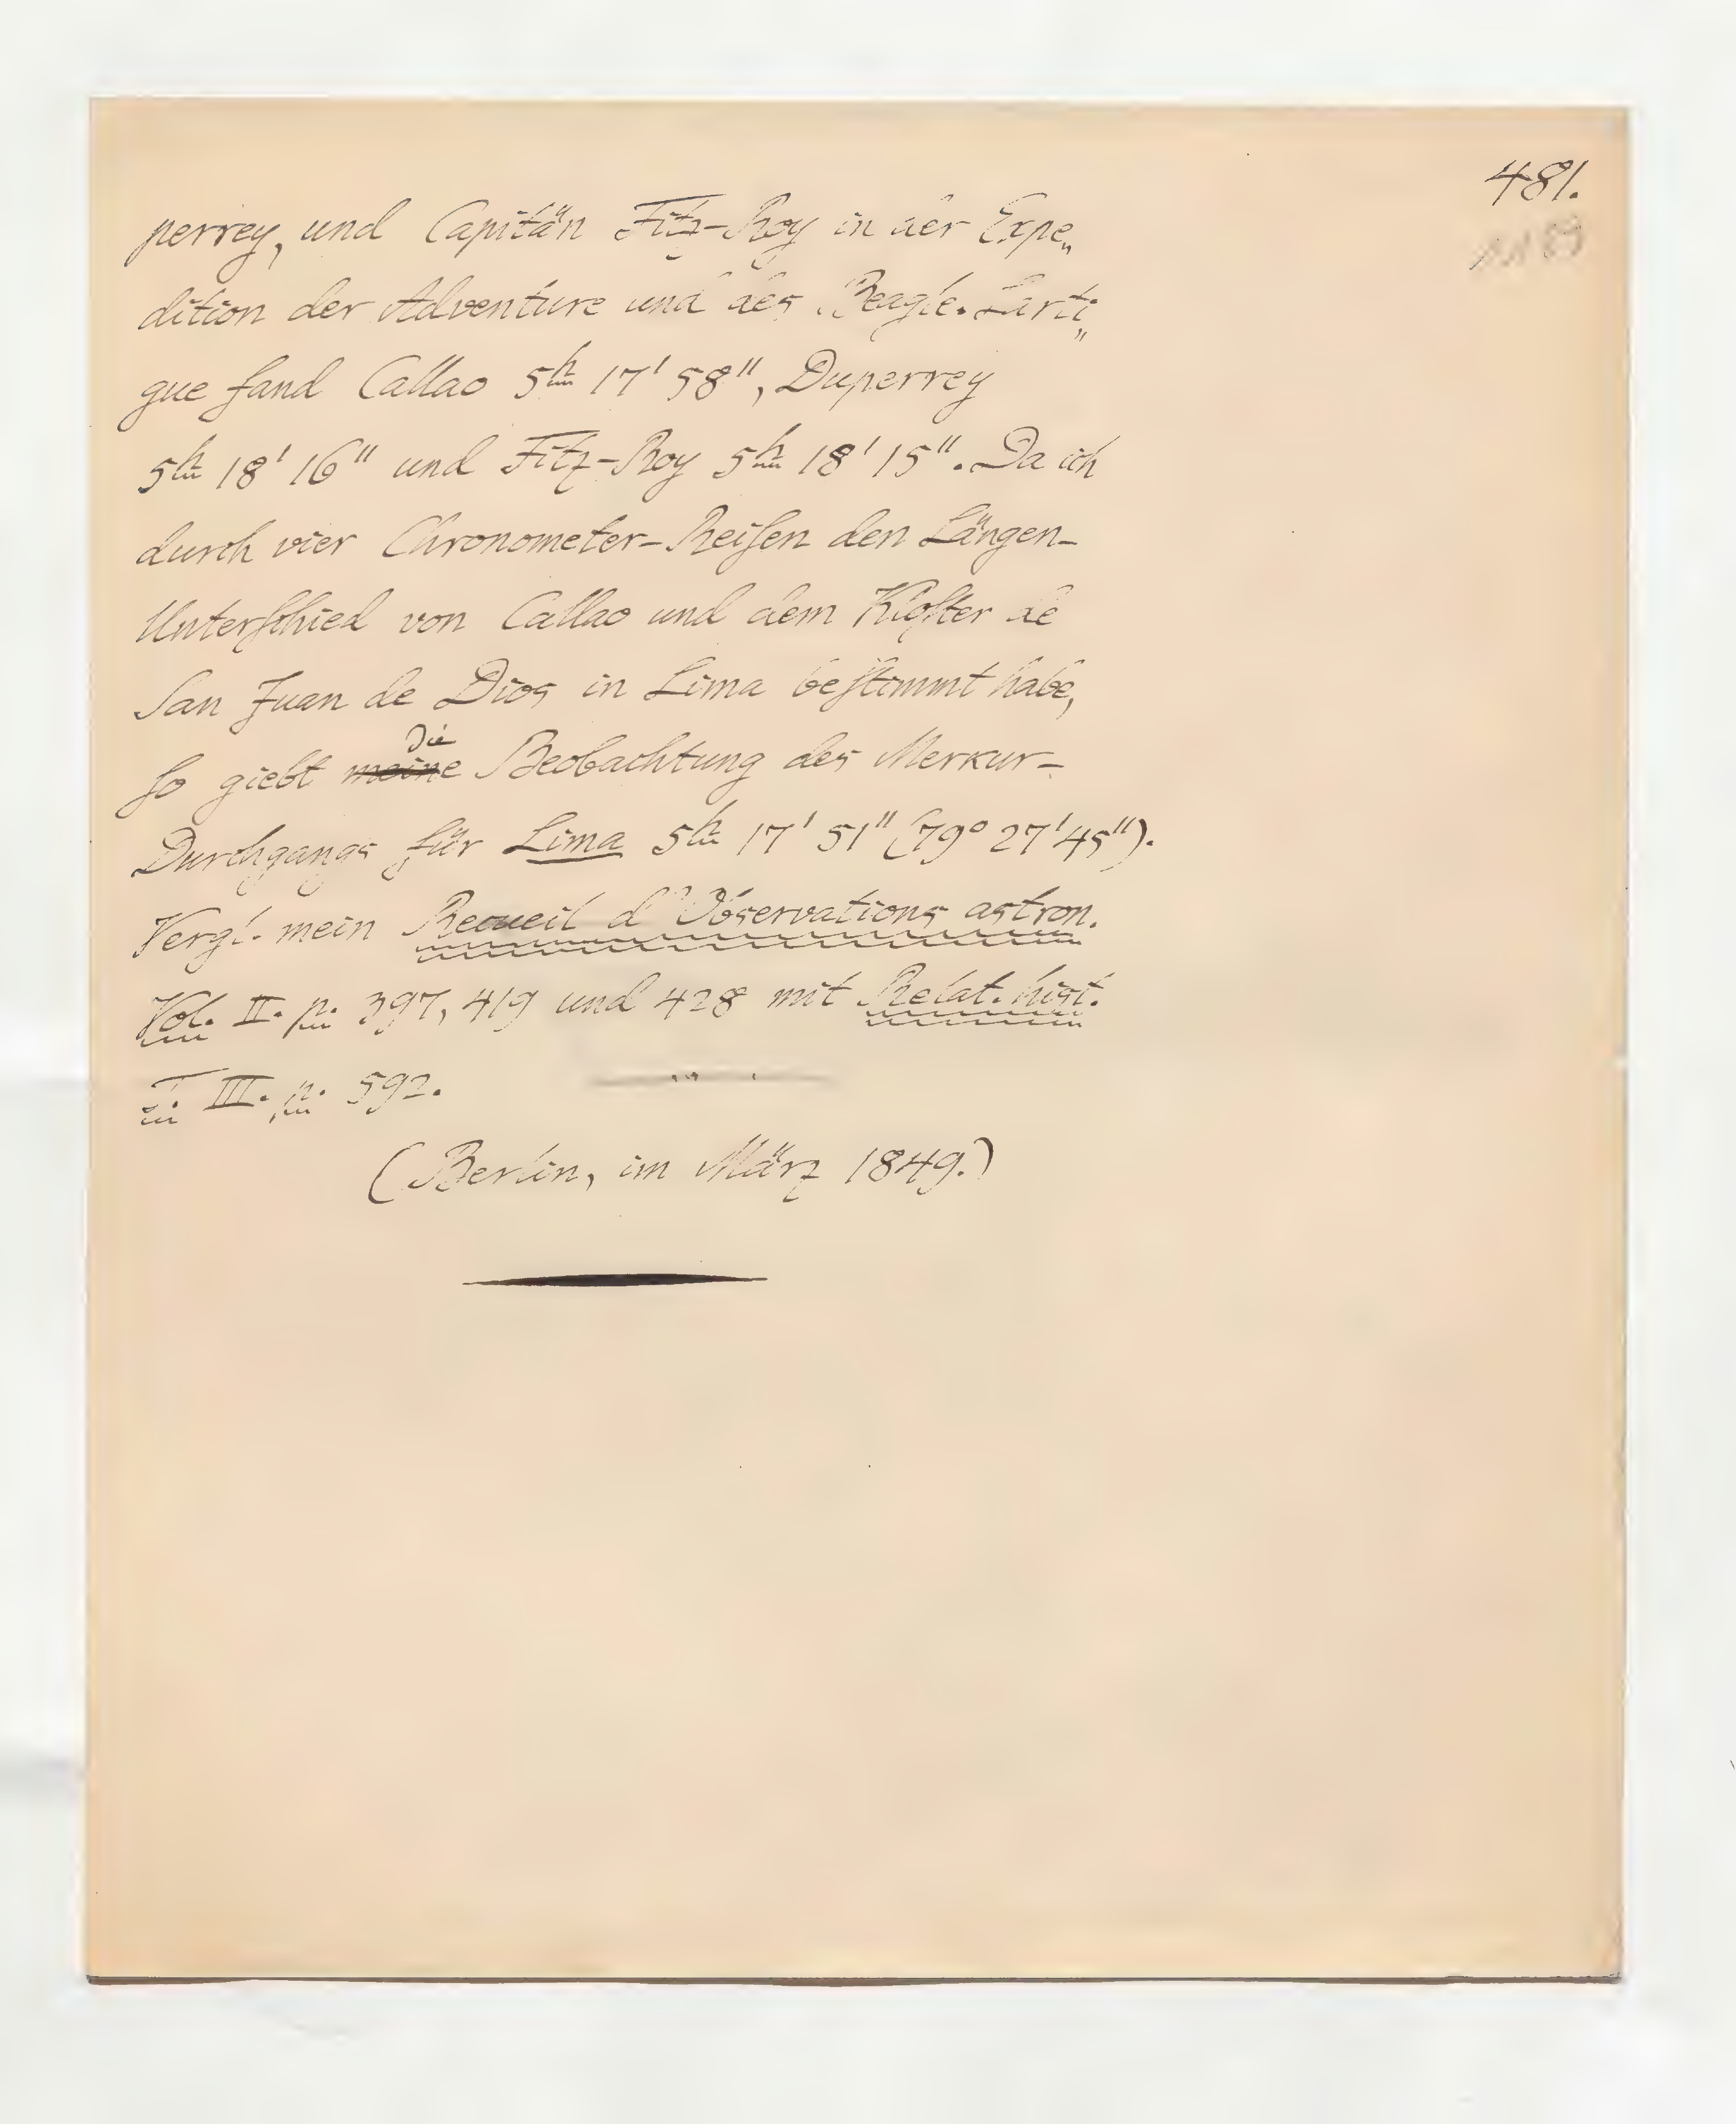 481.
perrey, und Capitän Fitz-Roy in der Expe„
dition der Adventure und des Beagle. Larti„
gue fand Callao 5h 17' 58", Duperrey
5h 18' 16" und Fitz-Roy 5h 18' 15". Da ich
durch vier Chronometer-Reiſen den Längen-
Unterſchied von Callao und dem Kloſter de
San Juan de Dios in Lima beſtimmt habe,
die
ſo giebt meine Beobachtung des Merkur-
Durchgangs für Lima 5h 17' 51" (79° 27' 45").
Vergl. mein Recueil d'Observations astron.
Vol. II. p. 397, 419 und 428 mit Relat. hist.
T. III. p. 592.
(Berlin, im März 1849.)